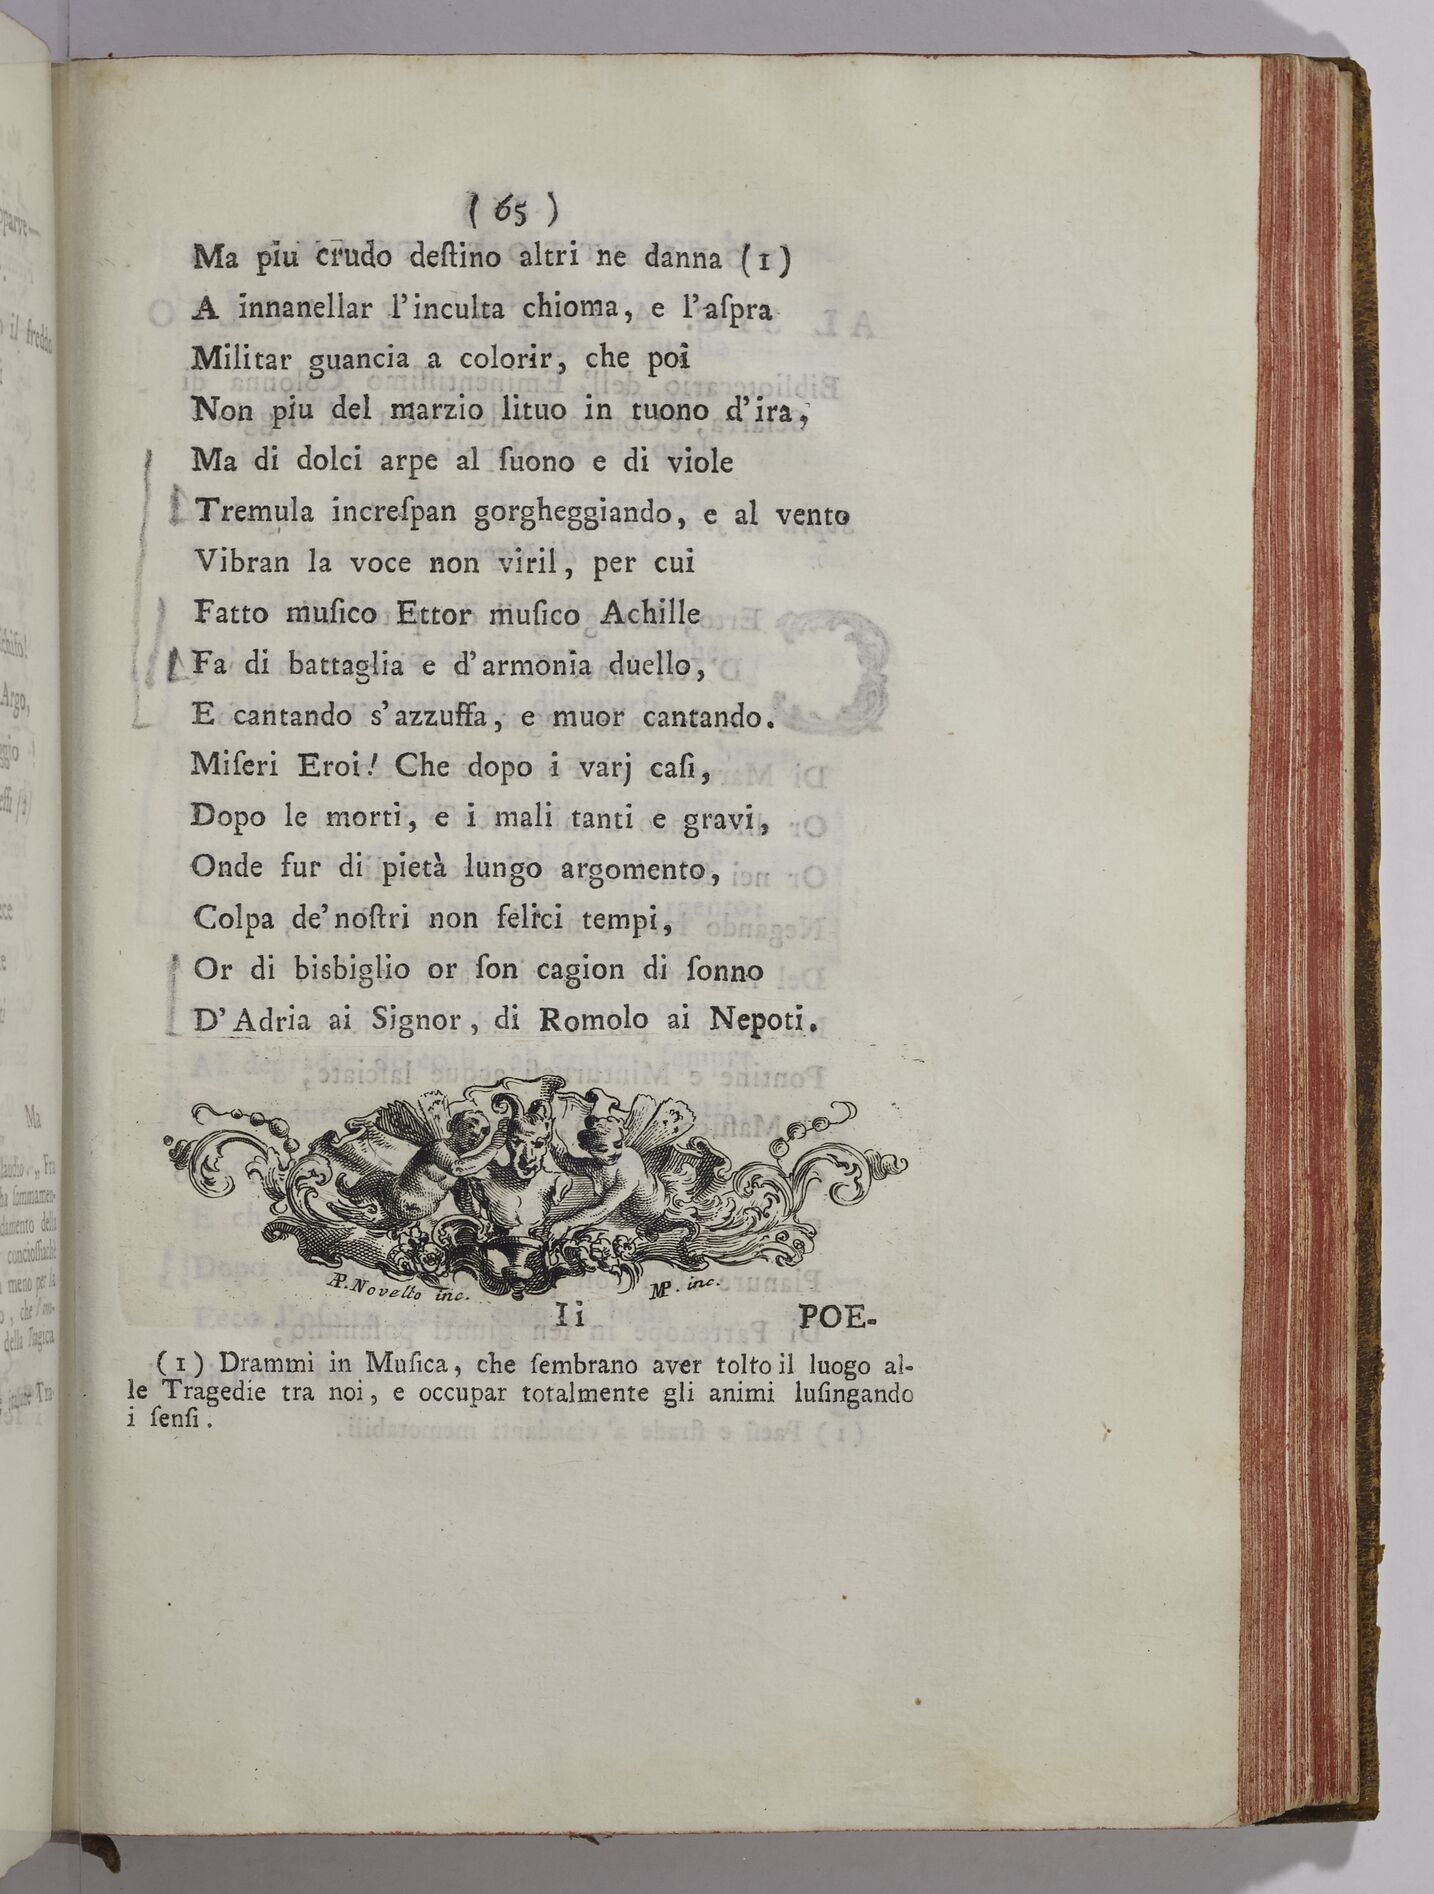 ( 65 )
Ma piu crudo deſtino altri ne danna (1)
A innanellar l'inculta chioma, e l'aſpra
Militar guancia a colorir, che poi
Non piu del marzio lituo in tuono d'ira,
Ma di dolci arpe al ſuono e di viole
Tremula increſpan gorgheggiando, e al vento
Vibran la voce non viril, per cui
Fatto muſico Ettor muſico Achille
Fa di battaglia e d'armonia duello,
E cantando s'azzuffa, e muor cantando.
Miſeri Eroi! Che dopo i varj caſi,
Dopo le morti, e i mali tanti e gravi,
Onde fur di pietà lungo argomento,
Colpa de'noſtri non felici tempi,
Or di bisbiglio or ſon cagion di ſonno
D'Adria ai Signor, di Romolo ai Nepoti.
AP. Novello inc. MP. inc.
Ii POE-
(1) Drammi in Muſica, che ſembrano aver tolto il luogo al-
le Tragedie tra noi, e occupar totalmente gli animi luſingando
i ſenſi.